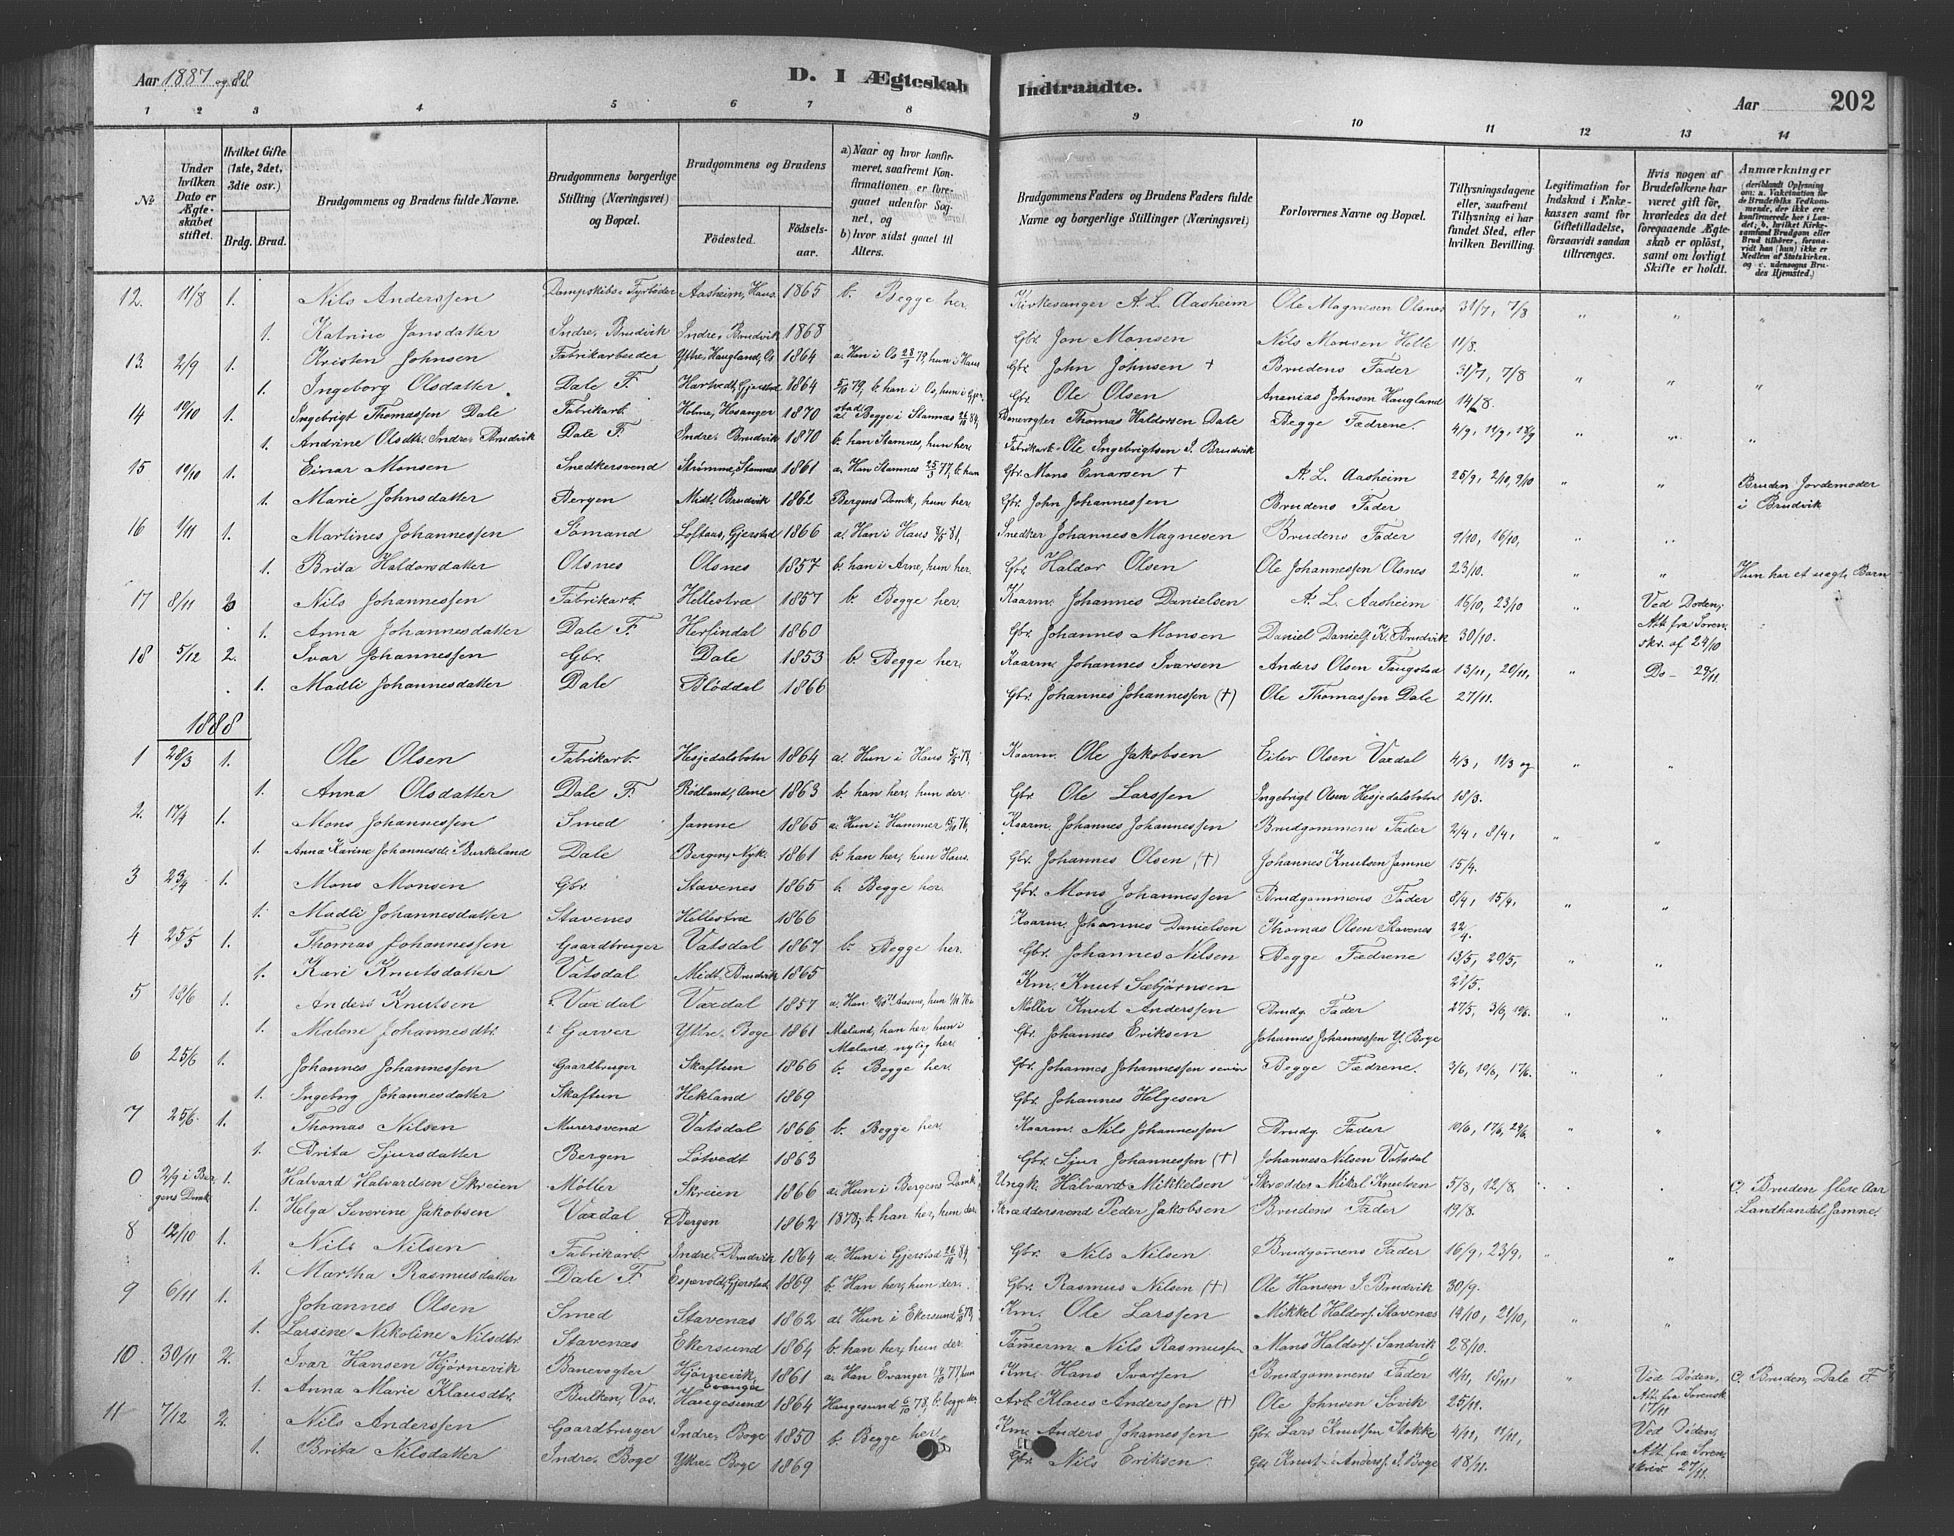 Aar 1887 og 88 D. I Ægteskab Indtraadte. Aar 202
1 2 3 4 5 6 7 8 9 10 11 12 13 14
No.
Under hvilken Dato er Ægteskabet stiftet.
Hvilket Gifte (1ste, 2det, 3dte osv.)
Brdg. Brud.
Brudgommens og Brudens fulde Navne.
Brudgommens borgerlige Stilling (Næringsvei) og Bopæl.
Brudgommens og Brudens
Fødested. Fødselsaar.
a) Naar og hvor konfirmeret, saafremt Konfirmationen er foregaaet udenfor Sognet, og
b) hvor sidst gaaet til Alters.
Brudgommens Faders og Brudens Faders fulde Navne og borgerlige Stillinger (Næringsvei)
Forlovernes Navne og Bopæl.
Tillysningsdagene eller, saafremt Tillysning ei har fundet Sted, efter hvilken Bevilling.
Legitimation for Indskud i Enkekassen samt for Giftetilladelse, forsaavidt saadan tiltrænges.
Hvis nogen af Brudefolkene har været gift før, hvorledes da det foregaaende Ægteskab er opløst, samt om lovligt Skifte er holdt.
Anmærkninger
12. 11/8 1. Nils Anderssen Dampskibs-Fyrbøder Aasheim, Haus. 1865 b. Begge her. Kirkesanger A. L. Aasheim Ole Magnesen Olsnes 31/7, 7/8 " " "
1. Katrine Jonsdatter Indre Brudvik Indre Brudvik 1868 Gbr. Jon Monsen Nils Monsen Helle 11/8.
13. 2/9 1. Kristen Johnsen Fabrikarbeider Ytre Haugland, Os 1864 a. Han i Os 28/9 79, hun i Haus Gbr. John Johnsen + Brudens Fader 31/7, 7/8 " " "
1. Ingeborg Olsdatter Dale F. Hartvedt, Gjerstad 1864 5/10 79, b. han i Os, hun i Gjerstad Gbr. Ole Olsen Ananias Johnsen Haugland 14/8.
14 19/10 1. Ingebrigt Thomassen Dale Fabrikarb. Holme, Hosanger 1870 a. Begge i Stamnes 26/10 84, Banevogter Thomas Haldorsen Dale Begge Fædrene. 4/9, 11/9, 18/9 " " "
1. Andrine Olsdtr. Indre Brudvik Dale F. Indre Brudvik 1870 b. han Stamnes, hun her. Fabrikarb. Ole Ingebrigtsen I. Brudvik
15 19/10 1. Einar Monsen Snedkersvend Strømme, Stamnes 1861 a. Han Stamnes 25/3 77, b. han Gbr. Mons Einarsen + A. L. Aasheim 25/9, 2/10, 9/10 " " Bruden Jordemoder
1. Marie Johnsdatter Bergen Midt. Brudvik 1862 Bergens Domk., hun her. Gbr. John Johannessen Brudens Fader i Brudvik
16 1/11 1. Martines Johannessen Sømand Loftaas, Gjerstad 1866 a. Han i Haus 81, Snedker Johannes Magnesen Brudens Fader 9/10, 16/10, " "
1. Brita Haldorsdatter Olsnes Olsnes 1857 b. han i Arne, hun her. Gbr. Haldor Olsen Ole Johannessen Olsnes 23/10. " " Hun har et uægte Barn
17 8/11 2 Nils Johannessen Fabrikarb. Hellestræ 1857 b. Begge her. Kaarm. Johannes Danielsen A. L. Aasheim 16/10, 23/10 " Ved Døden;
1. Anna Johannesdatter Dale F. Herfindal 1860 Gbr. Johannes Monsen Daniel Daniels. K. Brudvik 30/10. Att. fra Sorenskr. af 24/10
18 5/12 2. Ivar Johannessen Gbr. Dale 1853 b. Begge her. Kaarm. Johannes Ivarsen Anders Olsen Fangstad 13/11, 20/11, " Do - 23/11
1. Madli Johannesdatter Dale Bløddal 1866 Gbr. Johannes Johannessen (+) Ole Thomassen Dale 27/11.
1888
1 28/3 1. Ole Olsen Fabrikarb. Hesjedalsbotn 1864 a. Hun i Haus 78, Kaarm. Ole Jakobsen Eilev Olsen Vaxdal 4/3, 11/3 og " "
1. Anna Olsdatter Dale F. Rødland, Arne 1863 b. han her, hun der. Gbr. Ole Larssen Ingebrigt Olsen Hesjedalsbotn 18/3.
2. 17/4 1. Mons Johannessen Smed Jamne 1865 a. Hun i Hammer 76, Kaarm. Johannes Johannessen Brudgommens Fader 2/4, 8/4, "
1. Anna Karine Johannesdtr. Burkeland Dale Bergen, Nyk. 1861 b. han her, hun Haus. Gbr. Johannes Olsen (+) Johannes Knutsen Jamne 15/4.
3 23/4 1. Mons Monsen Gbr. Stavenes 1865 b. Begge her. Gbr. Mons Johannessen Brudgommens Fader 8/4, 15/4, " "
1. Madli Johannesdatter Stavenes Hellestræ 1866 Kaarm. Johannes Danielsen Thomas Olsen Stavenes 22/4.
4 25/5 1. Thomas Johannessen Gaardbruger Vatsdal 1867 b. Begge her. Gbr. Johannes Nilsen Begge Fædrene 13/5, 20/5, " "
1. Kari Knutsdatter Vatsdal Midt. Brudvik 1865 Km. Knut Sæbjørnsen 21/5.
5 18/6 1. Anders Knutsen Vaxdal Vaxdal 1857 Møller Knut Anderssen Brudg. Fader 27/5, 3/6, 10/6. " "
1. Malene Johannesdtr. Garver Ytre Boge 1861 Mæland, han her, hun i Mæland, nylig her. Gbr. Johannes Eriksen Johannes Johannessen Y. Boge
6 25/6 1. Johannes Johannessen Gaardbruger Skaftun 1866 b. Begge her. Gbr. Johannes Johannessen senior Begge Fædrene. 3/6, 10/6, 17/6. " "
1. Ingeborg Johannesdatter Skaftun Hekland 1869 Gbr. Johannes Helgesen
7 25/6 1. Thomas Nilsen Murersvend Vatsdal 1866 b. Begge her. Kaarm. Nils Johannessen Brudg. Fader 10/6, 17/6, 24/6. " "
1. Brita Sjursdatter Bergen Løtvedt 1863 Gbr. Sjur Johannessen (+) Johannes Nilsen Vatsdal
0 2/9 i Bergens Domk. 1. Halvard Halvardsen Skreien Møller Skreien 1866 a. Hun i Bergens Domk. Ungk. Halvard Mikkelsen Skrædder Mikal Knutsen 5/8, 12/8. c. Bruden flere Aar
1. Helga Severine Jakobsen Vaxdal Bergen 1862 1878, b. han her, hun der. Skræddersvend Peder Jakobsen Brudens Fader 19/8. Landhandel Jamne.
8 12/10 1. Nils Nilsen Fabrikarb. Indre Brudvik 1864 a. Hun i Gjerstad 26/10 84, Gbr. Nils Nilsen Brudgommens Fader 16/9, 23/9, " "
1. Martha Rasmusdatter Dale F. Espevold, Gjerstad 1869 b. Han her, hun der. Gbr. Rasmus Nilsen (+) Ole Hansen I. Brudvik 30/9.
9 6/11 1. Johannes Olsen Smed Stavenæs 1862 a. Hun i Ekersund 78, Km. Ole Larssen Mikkel Haldors. Stavenæs 14/10, 21/10, " "
1. Larsine Nikoline Nilsdtr. Stavenæs Ekersund 1864 b. han her, hun der. Tømmerm. Nils Rasmussen Mons Haldors. Sandvik 28/10.
10. 30/11 2. Ivar Hansen Hjørnevik Banevogter Hjørnevik, Evanger 1861 a. Han Evanger 77, hun Km. Hans Ivarsen Brudgommens Fader 11/11, 18/11, " Ved Døden, c. Bruden, Dale F.
1. Anna Marie Klausdtr. Bulken, Vos. Haugesund 1864 Haugesund 6/10 78, b. begge der. Arb. Klaus Anderssen (+) Ole Johnsen Sovik 25/11. Att. fra Sorensk. 17/11
11 7/12 2. Nils Anderssen Gaardbruger Indre Boge 1850 b. Begge her. Km. Anders Johannessen Gbr. Lars Knutsen Stokke 4/11, 11/11, Ved Døden,
1. Brita Nilsdatter Indre Boge Ytre Boge 1869 Gbr. Nils Eriksen. Gbr. Knut Anders. I. Boge 18/11. Att. fra Sorenskriv. 27/11.